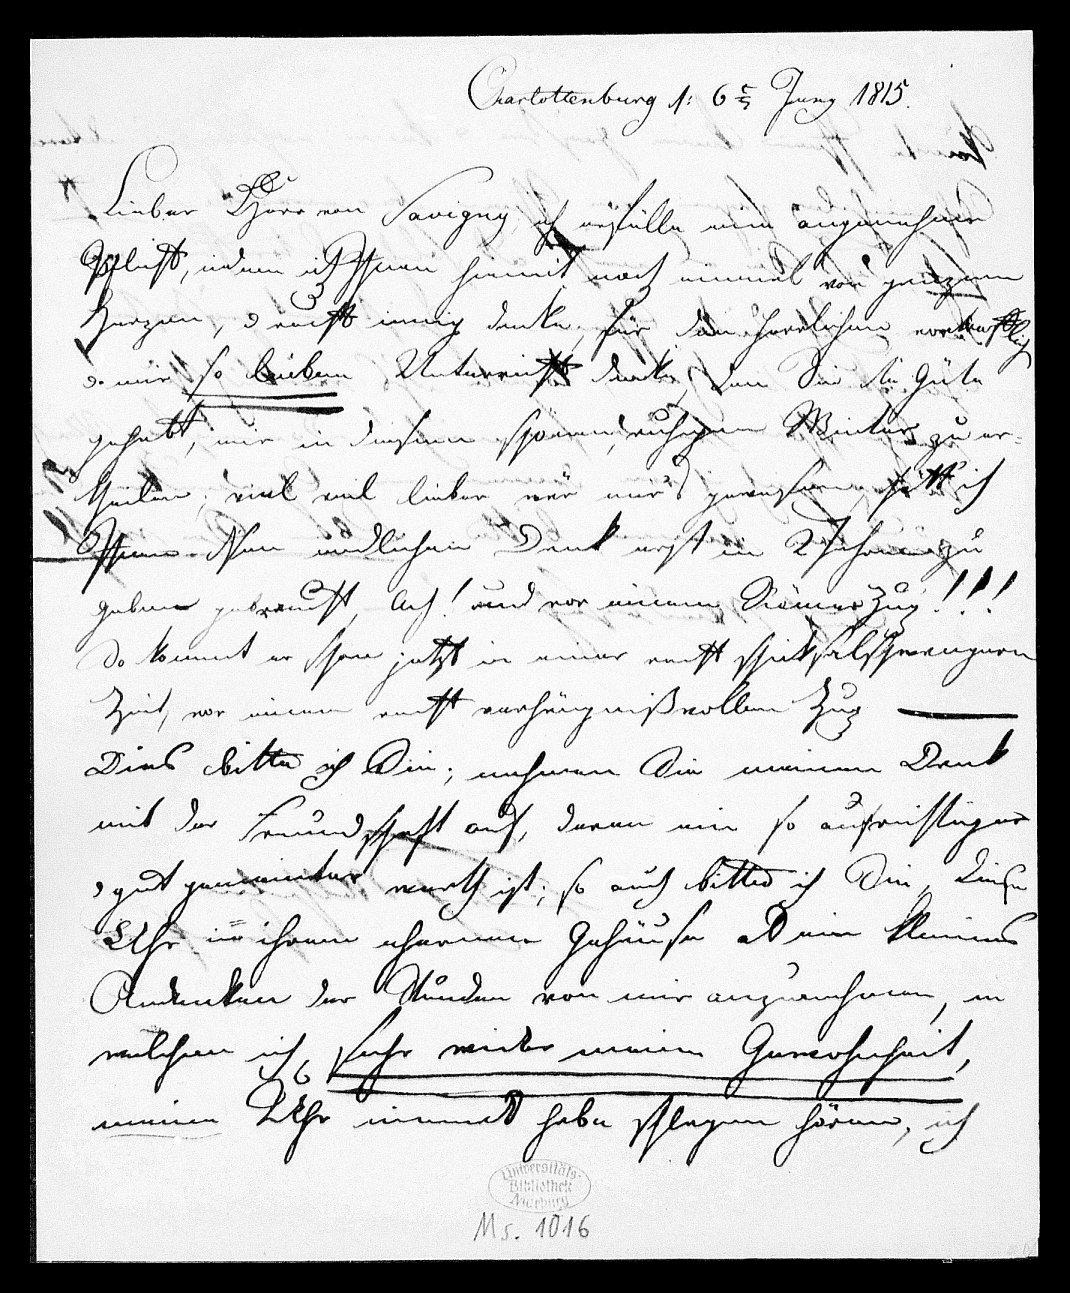 Charlottenburg d: 6t Juny 1815.
Lieber Herr von Savigny, ich erfülle eine angenehme
Pflicht, indem ich Ihnen hiemit noch einmal von ganzem
Herzen, u recht innig danke, für den herrlichen
u mir so lieben Unterricht danke, den Sie die Güte
gehabt, mir in diesem schönen, ruhigen Winter zu er-
theilen; viel viel lieber wär mir's gewesen hätt' ich
Ihnen den endlichen Dank erst in zu
geben gebraucht, Ach! und vor einem Römerzug!!!
So kommt er schon jetzt in einer recht schicksalsschwangern
Zeit, vor einem recht verhängnißvollen Zug —
Dies bitte ich Sie; nehmen Sie meinen Dank
mit der Freundschaft auf, deren ein so aufrichtiger
u gut gemeinter werth ist; so auch bitte ich Sie, diese
Uhr in ihrem Gehäuse als ein kleines
Andenken der Stunden von mir anzunehmen, in
welchen ich, sehr wider meine Gewohnheit,
meine Uhr niemals habe schlagen hören, ich
Universitäts-
Bibliothek
Marburg
Ms. 1016